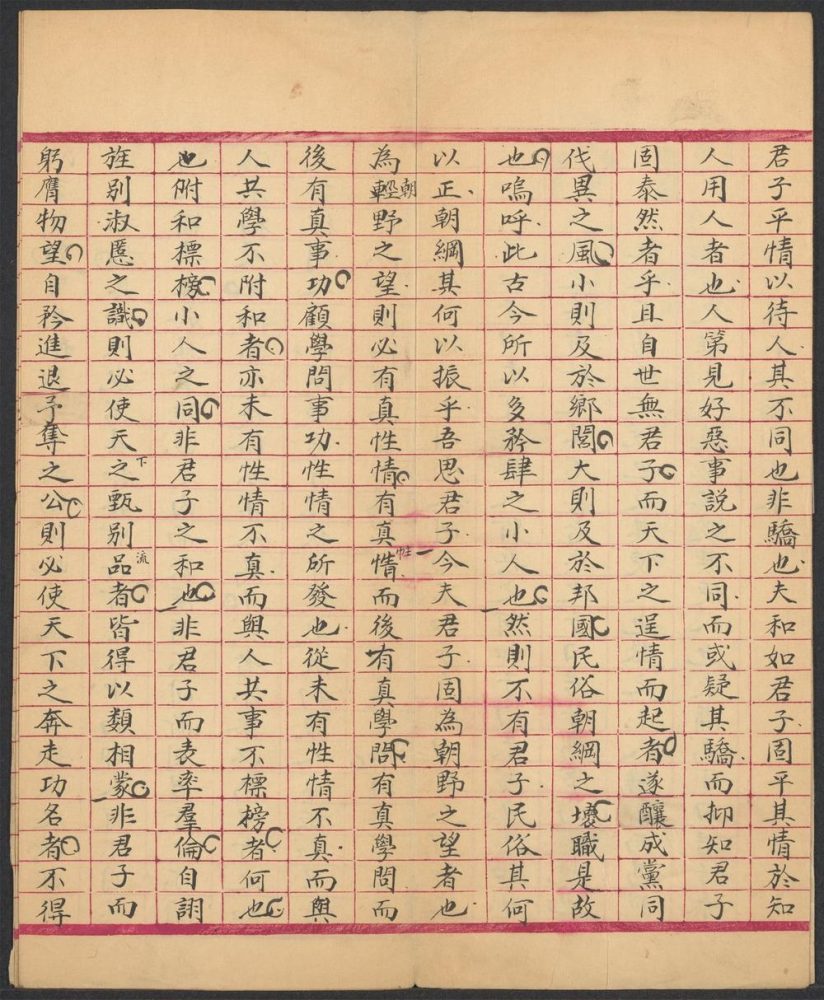 君子平情以待人其不同也非驕也夫和如君子固平其情於知
人用人者也人第見好惡事說之不同而或疑其驕而抑知君子
固泰然者乎且自世無君子而天下之逞情而起者遂釀成黨同
伐異之風小則及於鄉閭大則及於邦國民俗朝綱之壞職是故
也嗚呼此古今所以多矜肆之小人也然則不有君子民俗其何
以正朝綱其何以振乎吾思君子今夫君子固為朝野之望者也
為朝野之望則必有真性情有真性情而後有真學問有真學問而
後有真事功顧學問事功性情之所發也從未有性情不真而與
人共學不附和者亦未有性情不真而與人共事不標榜者何也
也附和標榜小人之同非君子之和也非君子而表率羣倫自詡
旌別淑慝之識則必使天下之甄別流品者皆得以類相蒙非君子而
躬膺物望自矜進退予奪之公則必使天下之奔走功名者不得